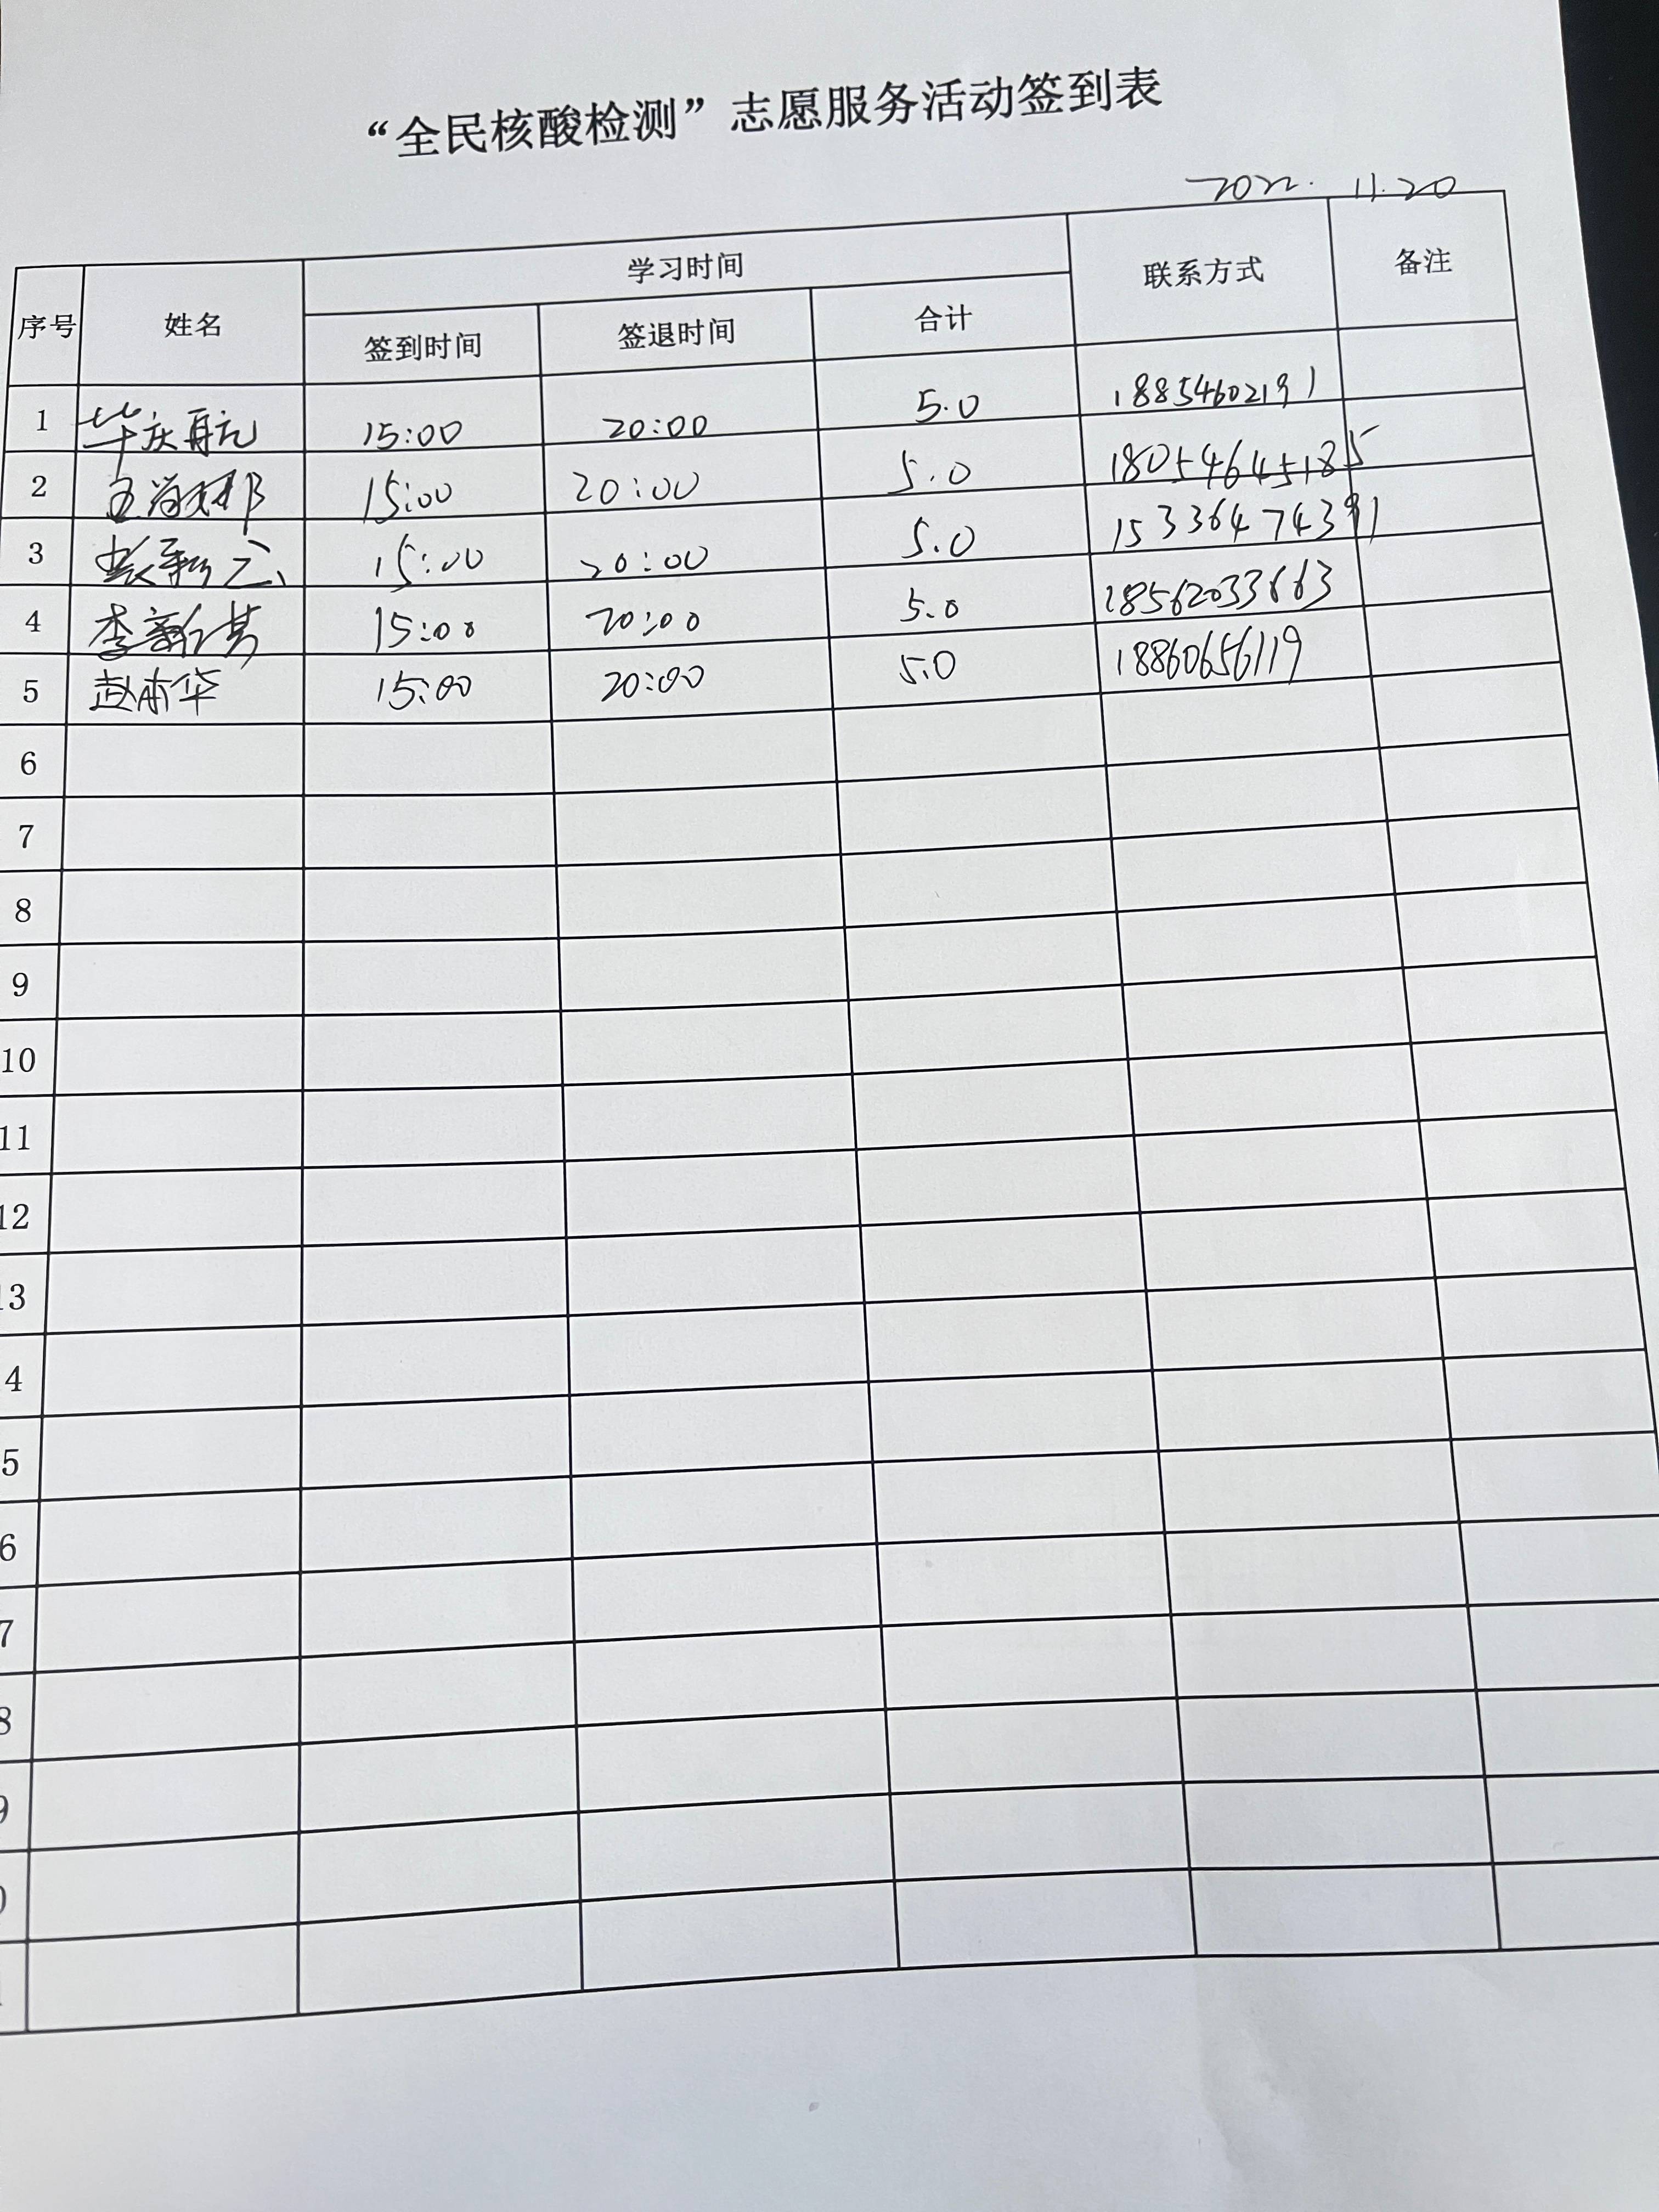 “全民核酸检测”志愿服务活动签到表
2022. 11.20
序号 姓名 学习时间 联系方式 备注
签到时间 签退时间 合计
1 15:00 20:00 5.0 18854602191
2 15:00 20:00 5.0 18054645185
3 15:00 20:00 5.0 15336474391
4 李 15:00 20:00 5.0 18562033663
5 赵 华 15:00 20:00 5.0 18860656119
6
7
8
9
10
11
12
13
4
5
6
7
8
9
0
1